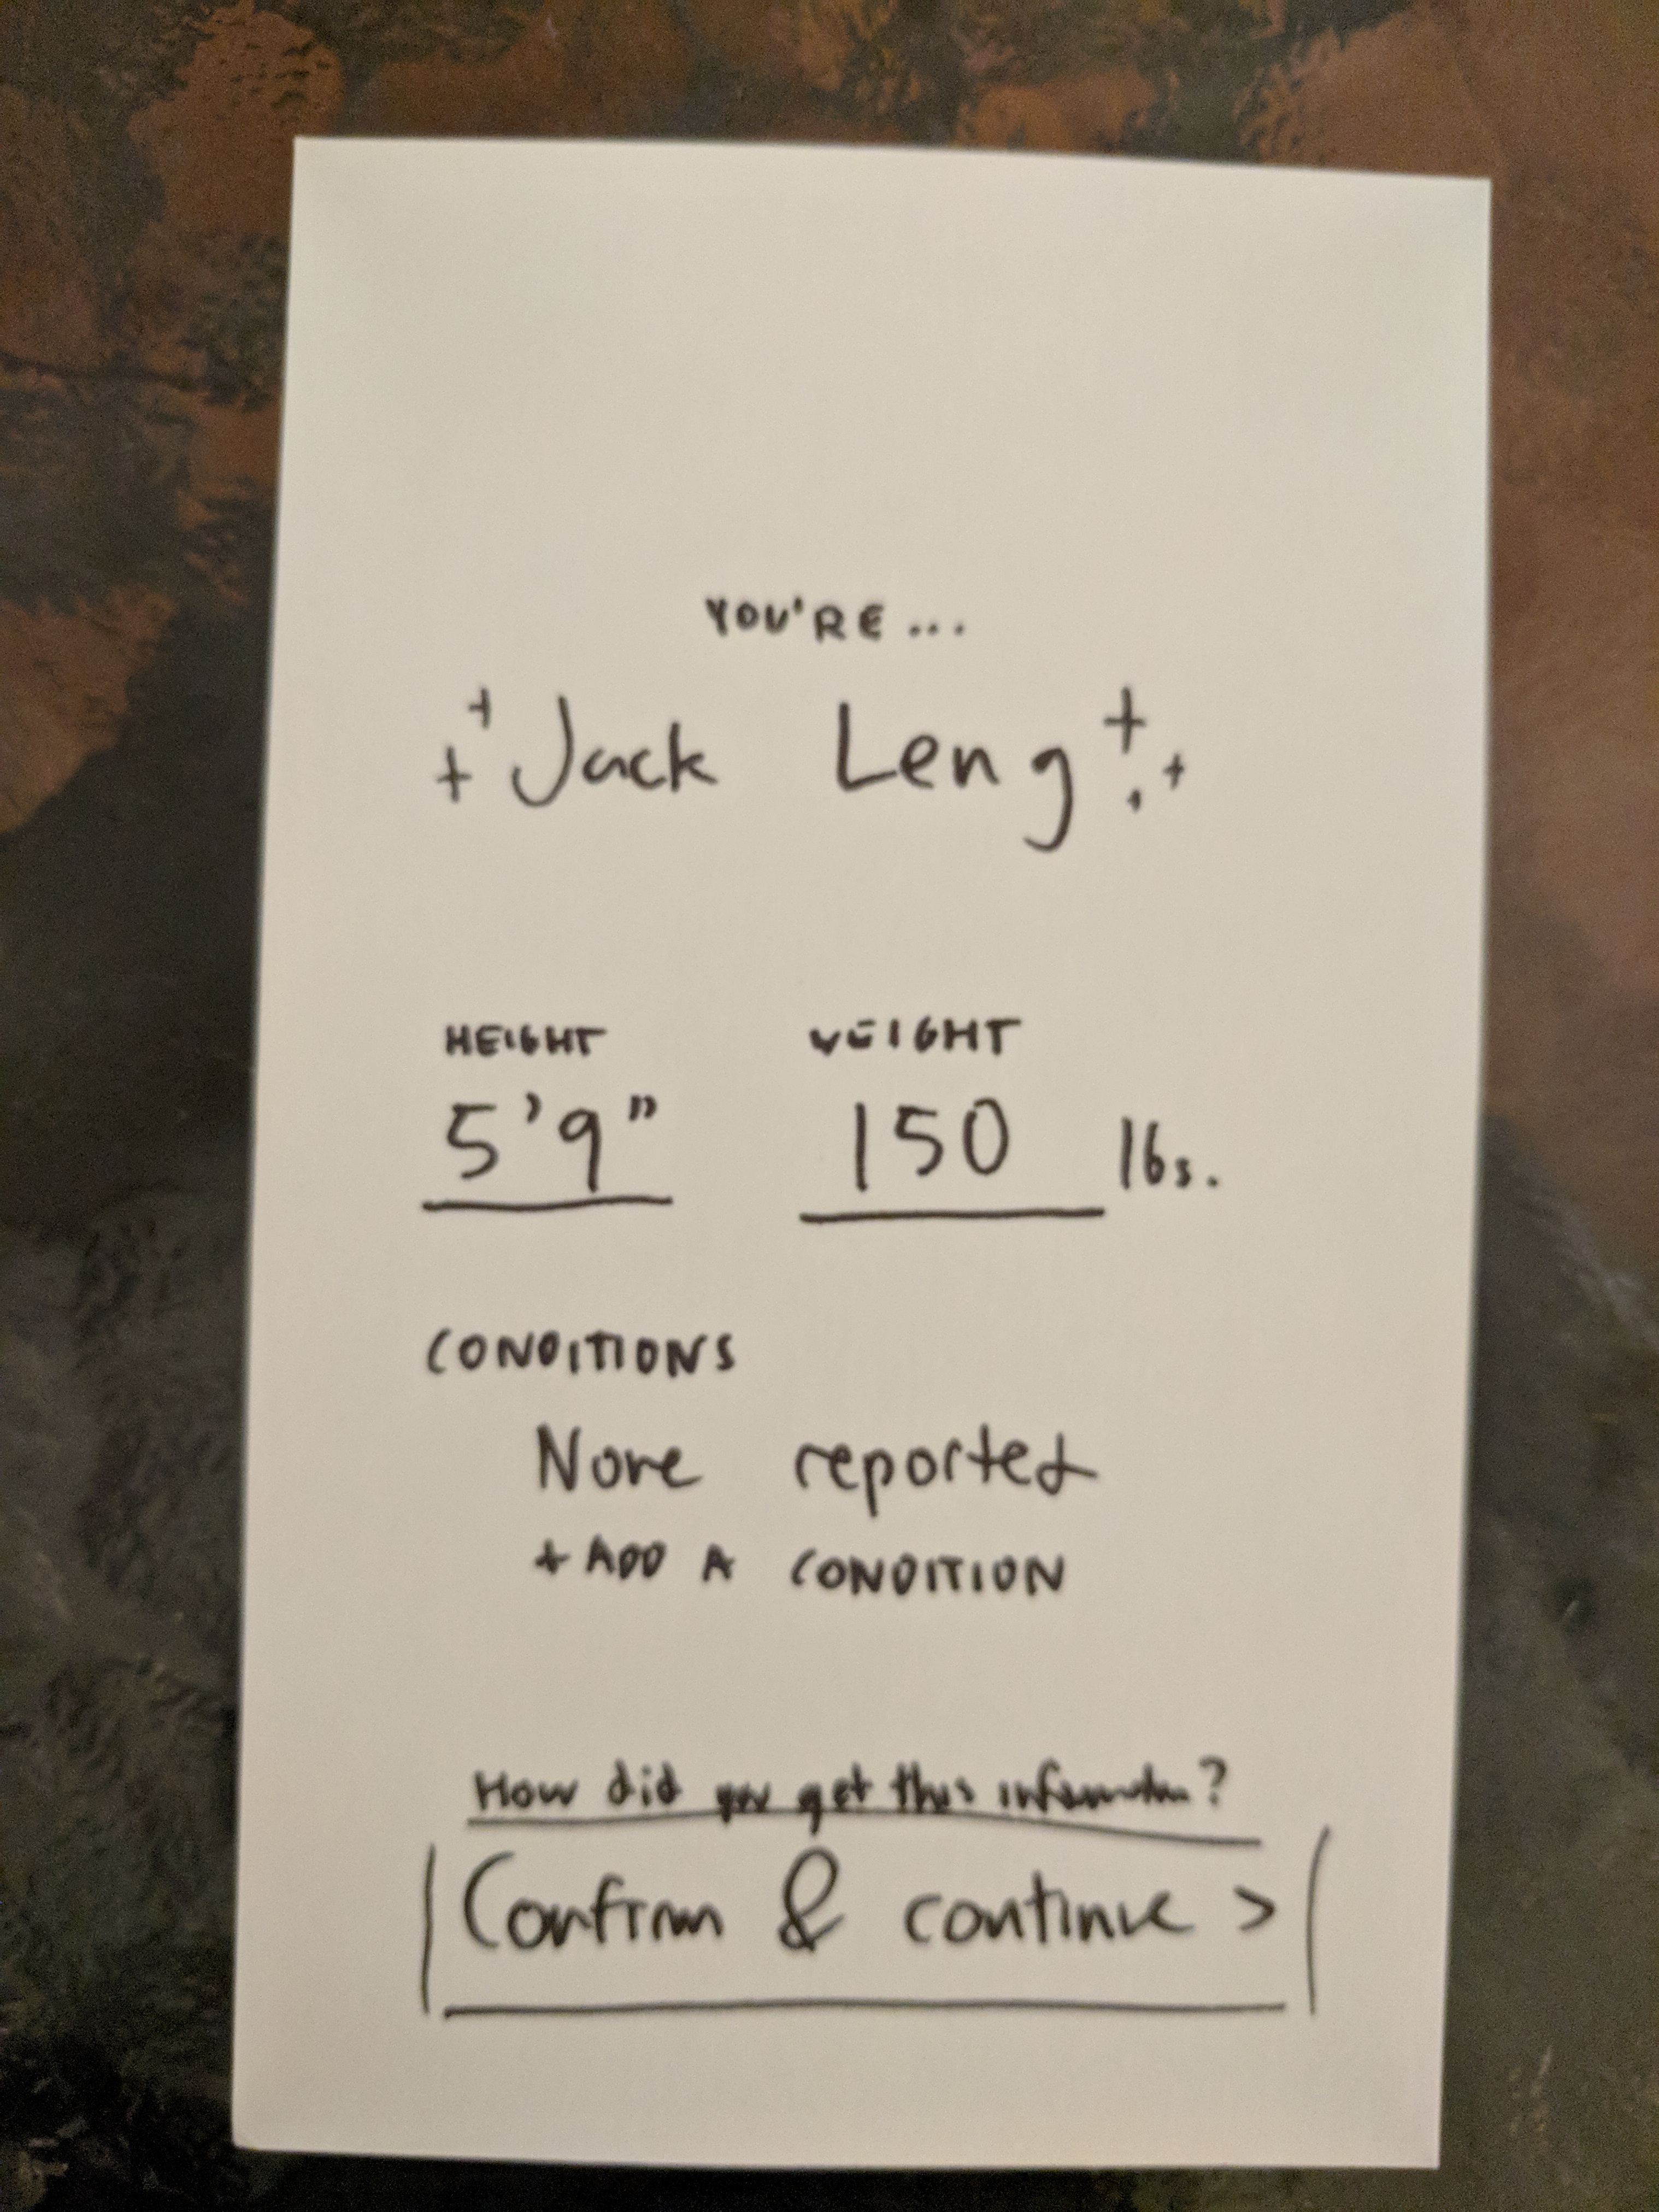 YOU'RE...
Jack Leng
HEIGHT WEIGHT
5'9" 150 lbs.
CONDITIONS
None reported
+ ADD A CONDITION
How did you get this information?
Confirm & continue >